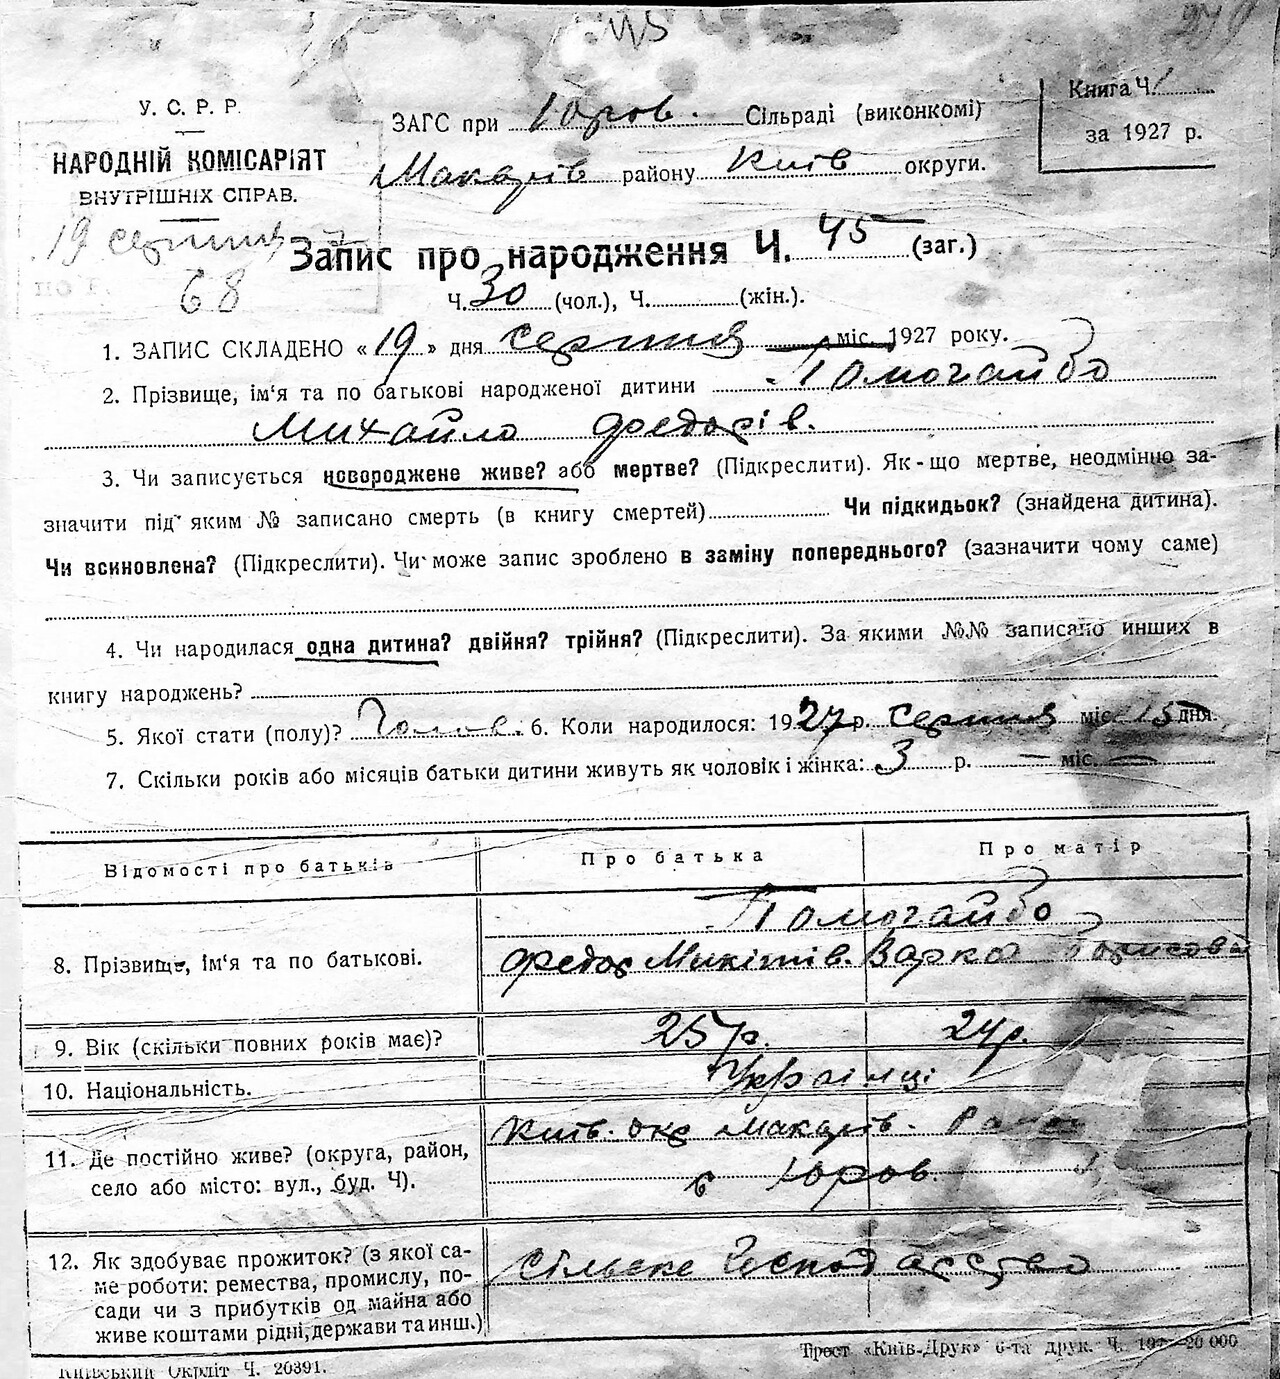 145
У. С. Р. Р.
НАРОДНІЙ КОМІСАРІЯТ
ВНУТРІШНІХ СПРАВ.
ЗАГС при Юров. Сільраді (виконкомі)
Макарів району Київ округи.
Книга Ч. 1
за 1927 р.
19 серпня 27
68
Запис про народження Ч. 45 (заг.)
Ч. 30 (чол.), Ч. (жін.).
1. ЗАПИС СКЛАДЕНО «19» дня серпня міс. 1927 року.
2. Прізвище, ім'я та по батькові народженої дитини Помогайбо
Михайло Федорів.
3. Чи записується новороджене живе? або мертве? (Підкреслити). Як-що мертве, неодмінно за-
значити під яким № записано смерть (в книгу смертей) Чи підкидьок? (знайдена дитина).
Чи всиновлена? (Підкреслити). Чи може запис зроблено в заміну попереднього? (зазначити чому саме)
4. Чи народилася одна дитина? двійня? трійня? (Підкреслити). За якими №№ записано инших в
книгу народжень?
5. Якої стати (полу)? Чолов. 6. Коли народилося: 1927 р. серпня міс. 15 дня.
7. Скільки років або місяців батьки дитини живуть як чоловік і жінка: 3 р. — міс. —
Відомості про батьків Про батька Про матір
Помогайбо
8. Прізвище, ім'я та по батькові. Федор Микітів. Варка Борисова
9. Вік (скільки повних років має)? 25 р. 24 р.
10. Національність. Українці
11. Де постійно живе? (округа, район, Київ. окр Макарів. Район
село або місто: вул., буд. Ч). с Юров.
12. Як здобуває прожиток? (з якої са- Сільске господарство
ме роботи: ремества, промислу, по-
сади чи з прибутків од майна або
живе коштами рідні, держави та инш.)
Київський Окрліт Ч. 20391.
Трест «Київ-Друк» 6-та друк. Ч. 20 000